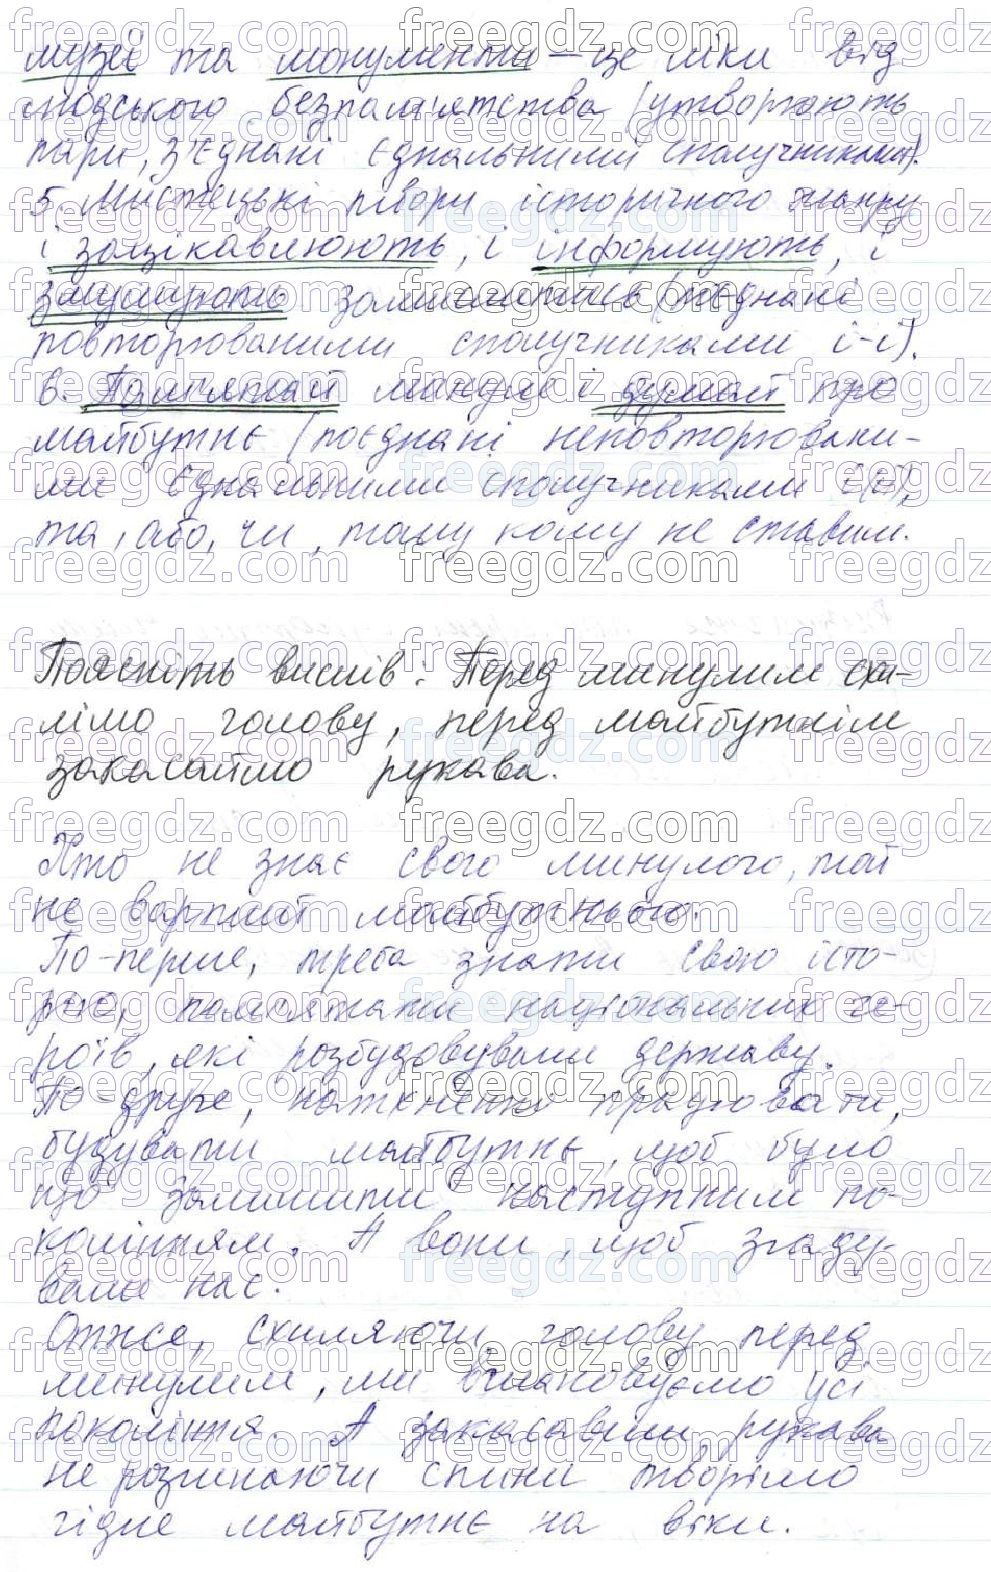 музеї та монументи — це ліки від
людського безпам'ятства (утворюють
пари, з'єднані єднальними сполучниками).
5. Мистецькі твори історичного жанру
і зацікавлюють, і інформують, і
змушують замислитись (поєднані
повторюваними сполучниками і-і).
6. Пам'ятай минуле і думай про
майбутнє (поєднані неповторювани-
ми єднальними сполучниками і(й),
та, або, чи, тому кому не ставим.
Поясніть вислів: Перед минулим схи-
лімо голову, перед майбутнім
закасаймо рукава.
Хто не знає свого минулого, той
не вартий майбутнього.
По-перше, треба знати свою істо-
рію, пам'ятати національних ге-
роїв, які розбудовували державу.
По-друге, натхненно працювати,
будувати майбутнє, щоб було
що залишити наступним по-
колінням. А вони, щоб згаду-
вали нас.
Отже, схиляючи голову перед
минулим, ми вшановуємо усі
покоління. А закасавши рукава
не розгинаючи спини творімо
гідне майбутнє на віки.